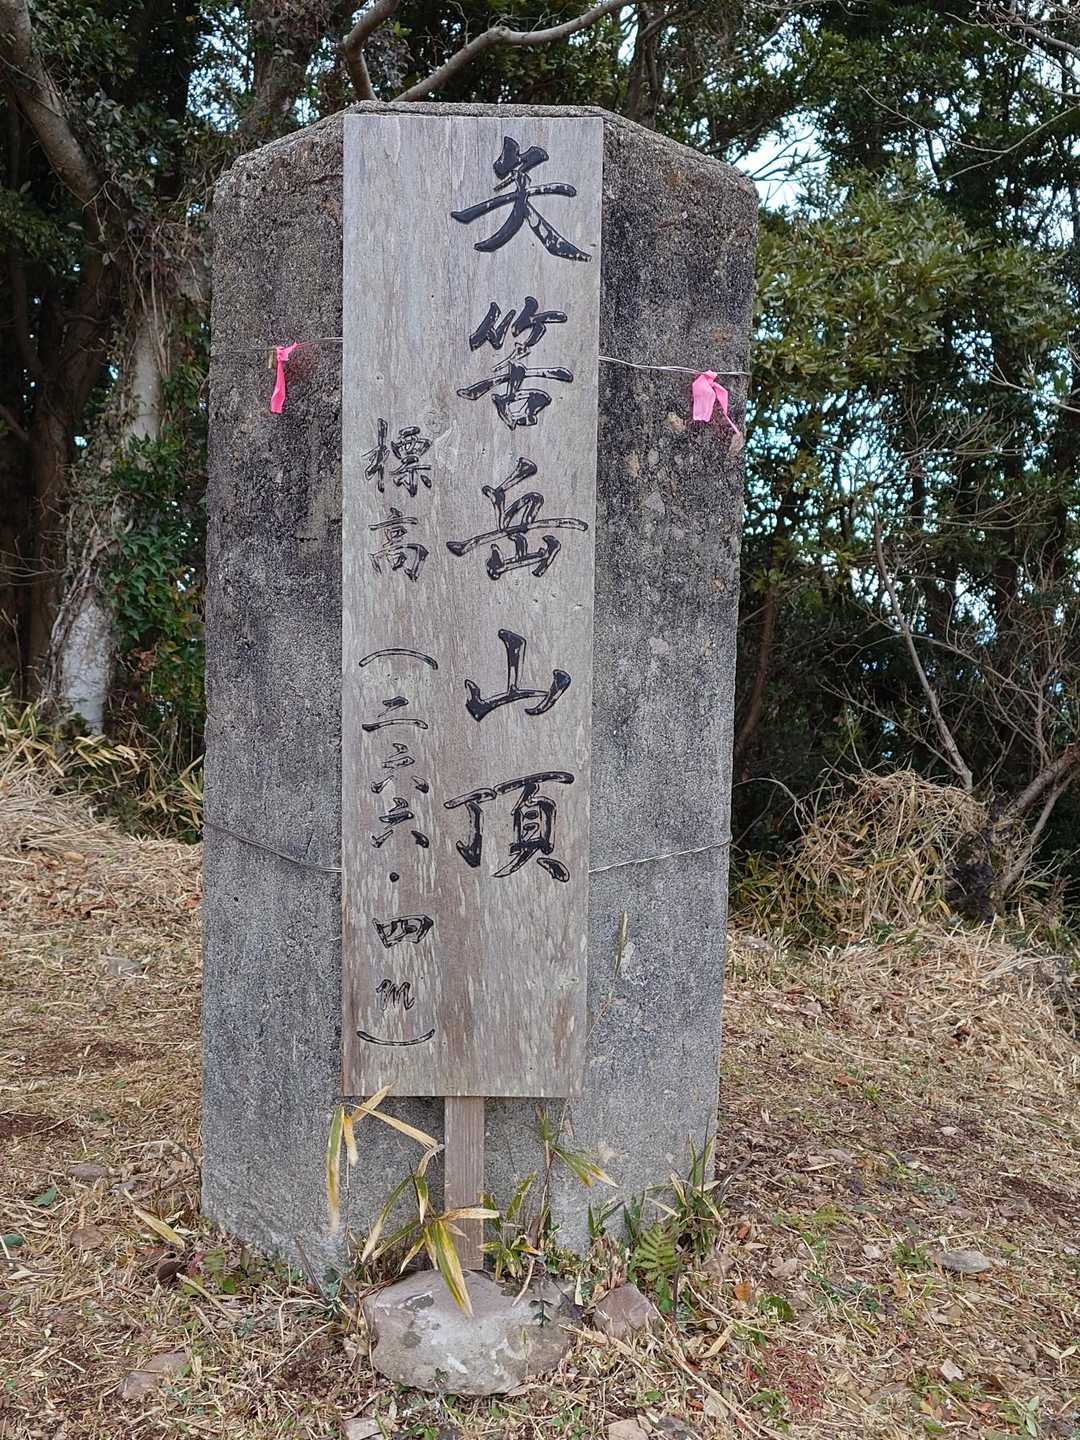 矢筈岳山頂
標高（二六六・四m）